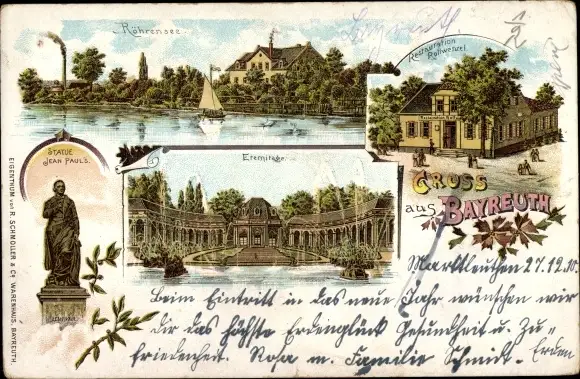 Röhrensee.
Restauration
Rollwenzel
STATUE
JEAN PAUL'S.
Eremitage.
GRUSS
aus BAYREUTH
EIGENTHUM von R. SCHMOLLER & Co. WARENHAUS, BAYREUTH.
Marktleuthen 27.12.10.
Beim Eintritt in das neue Jahr wünschen wir
dir das höchste Erdenglück Gesundheit u. Zu-
friedenheit. Rosa m. Familie Schmidt. Erden